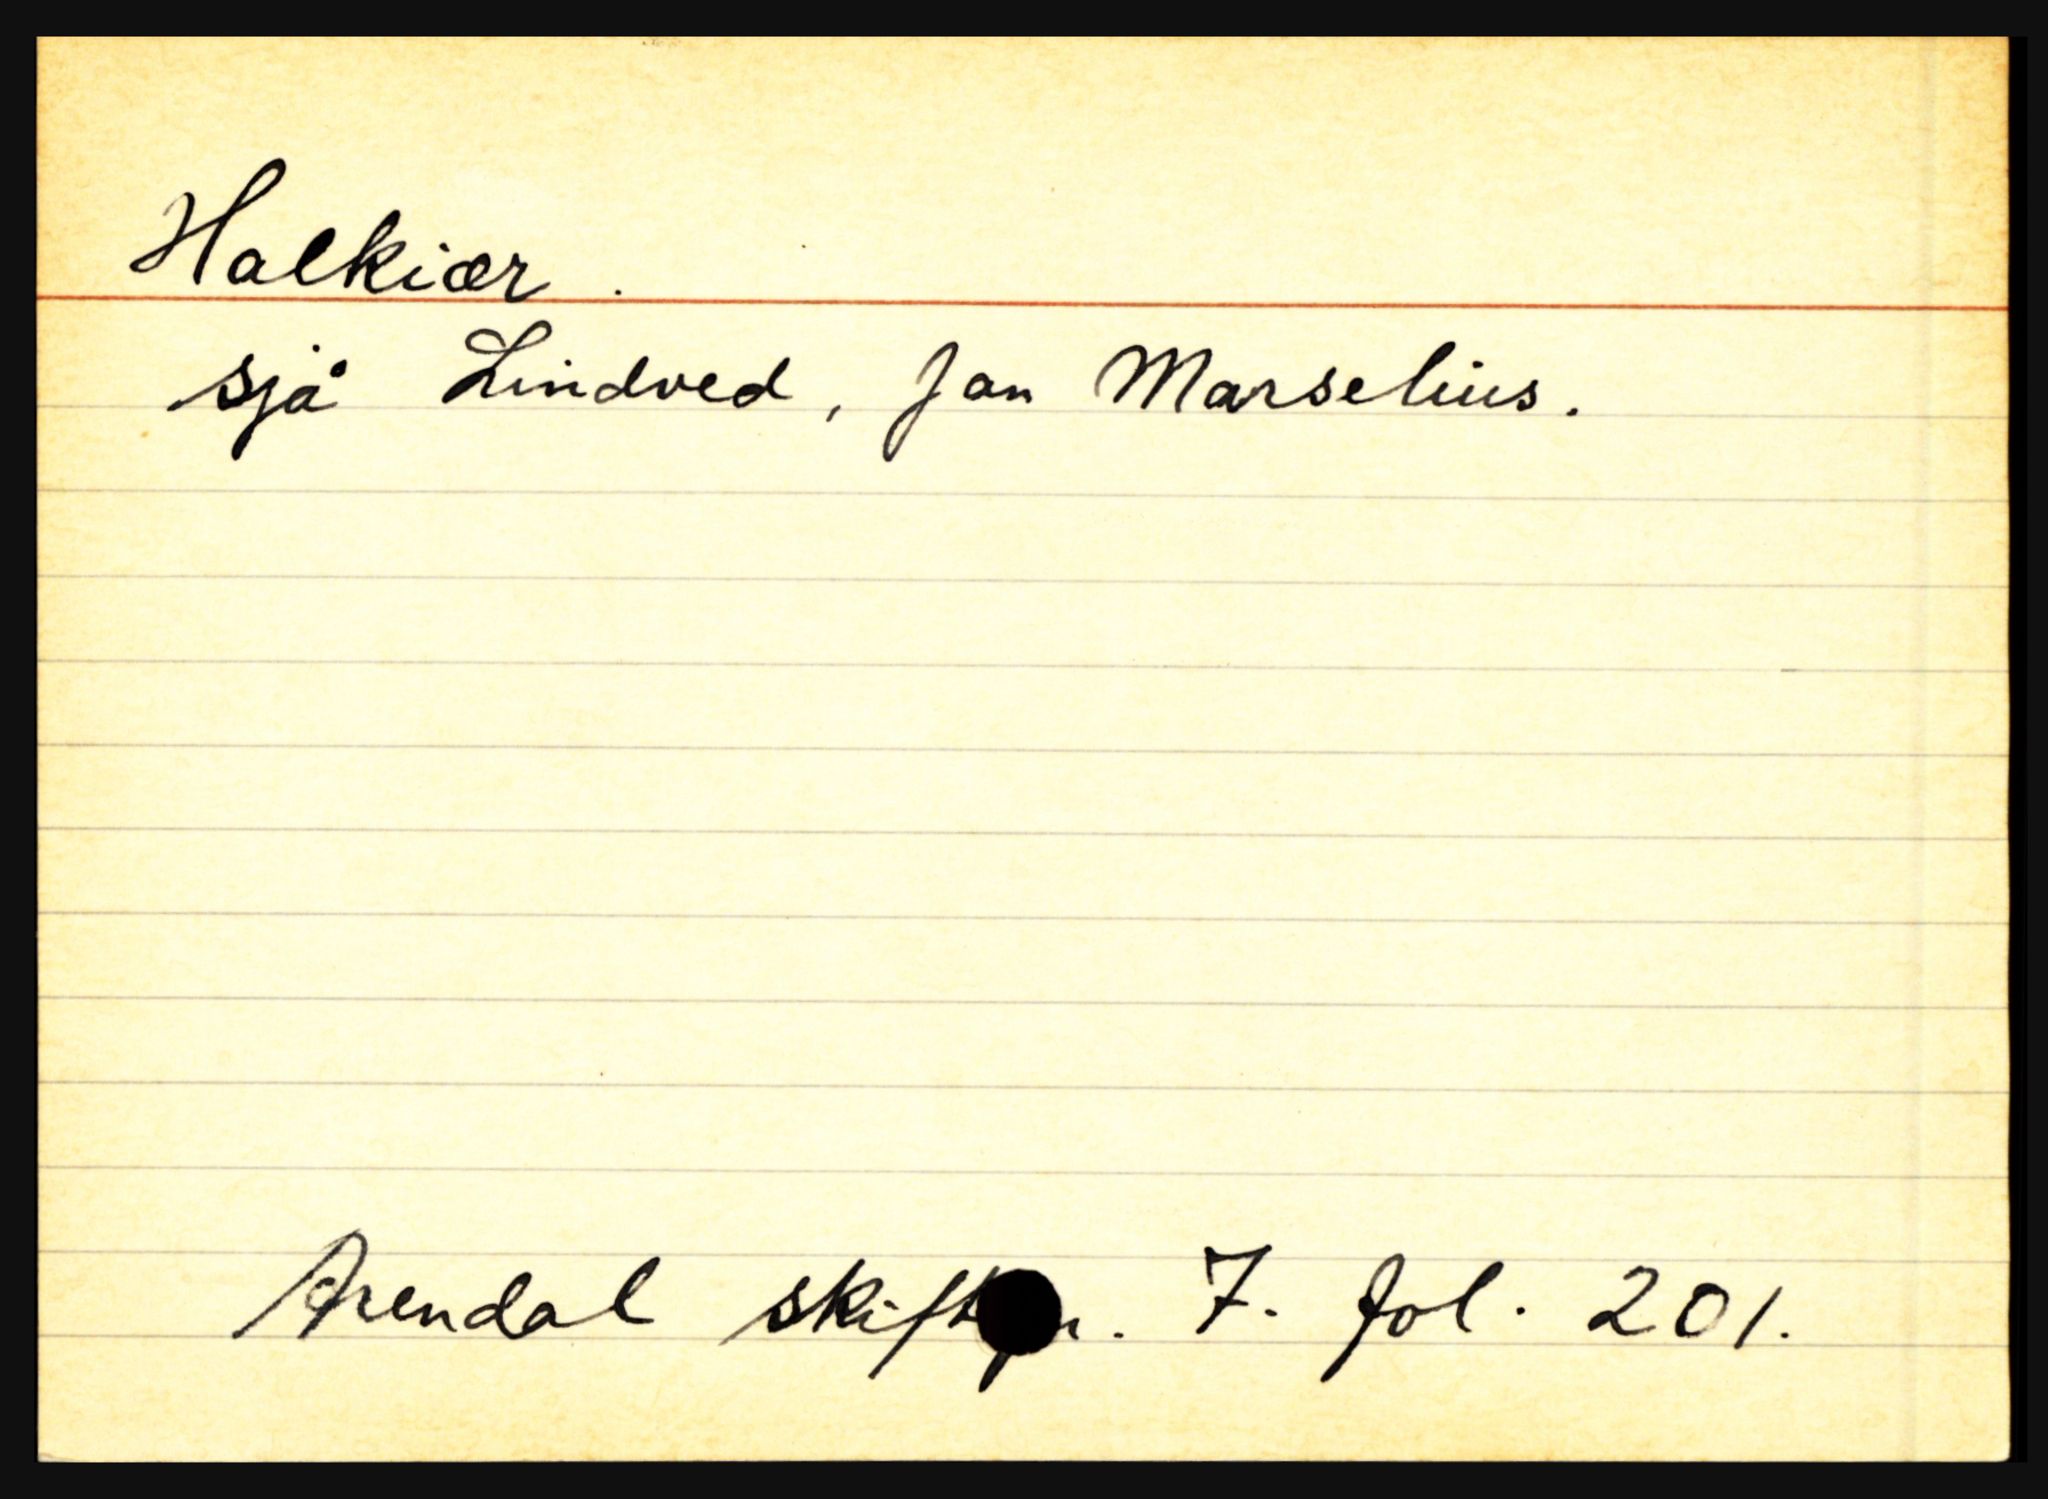 Halkiær.
sjå Lindved, Jan Marselius.
Arendal 7. fol. 201.